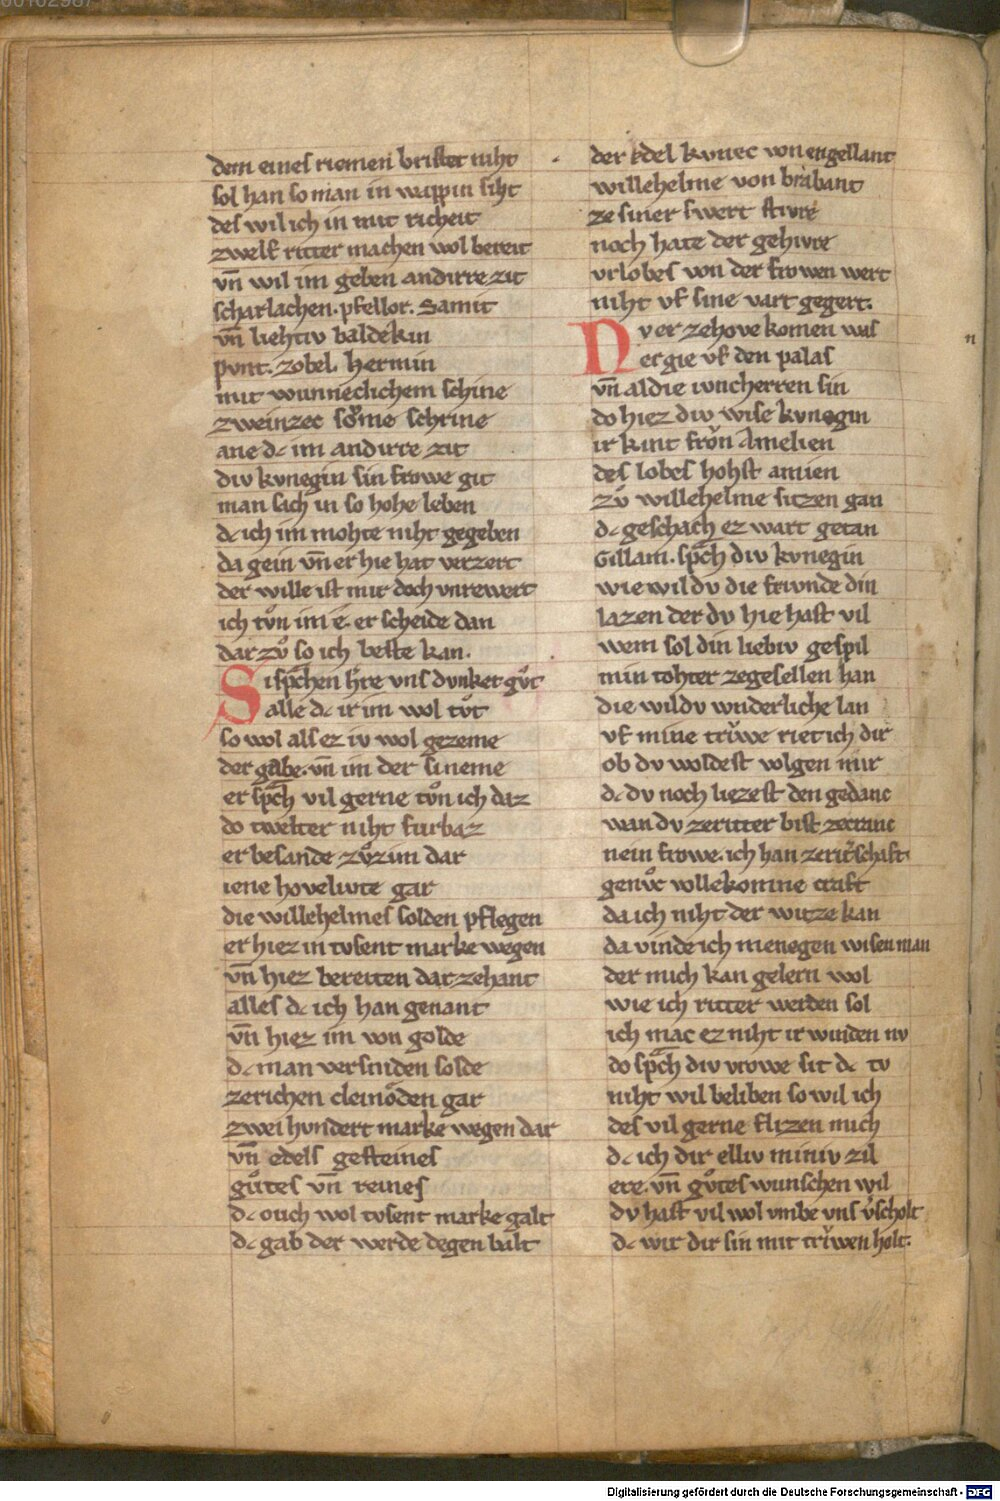 dem eines riemen bristet niht
sol han so man in wappin siht
des wil ich in mit richeit
zwelf ritter machen wol bereit
vn̄ wil im geben andirre zit
scharlachen. pfellor. Samit
vn̄ liehtiv baldekin
pvnt. zobel. hermin
mit wunneclichem schine
zweinzec sǒme schrine
ane dc im andirre zit
div kvnegin sin frowe git
man sich in so hohe leben
dc ich im mohte niht gegeben
da gein vn̄ er hie hat verzert
der wille ist mir doch vnrewert
ich tv̊n im e. er scheide dan
dar zv̊ so ich beste kan.
Si sp̄chen h̄re vns dvnket gv̊t
alle dc ir im wol tv̊t
so wol als ez iv wol gezeme
der gabe. vn̄ im der si neme
er sp̄ch vil gerne tv̊n ich daz
do twelter niht furbaz
er besande zv̊zim dar
iene hovelivte gar
die willehelmes solden pflegen
er hiez in tvsent marke wegen
vn̄ hiez bereiten dar zehant
alles dc ich han genant
vn̄ hiez im von golde
dc man versniden solde
zerichen cleinǒden gar
zwei hvndert marke wegen dar
vn̄ edels gesteines
gv̊tes vn̄ reines
dc ouch wol tvsent marke galt
dc gab der werde degen balt
der edel kvnec von engellant
willehelme von brabant
ze siner swert stivre
noch hate der gehivre
vrlobes von der frowen wert
niht vf sine vart gegert.
Nv er zehove komen was
er gie vf den palas
n
vn̄ al die ivncherren sin
do hiez div wise kvnegin
ir kint frǒn Amelien
des lobes hohst amien
zv̊ willehelme sitzen gan
dc geschach ez wart getan
Gillam. sp̄ch div kvnegin
wie wil dv die frivnde din
lazen der dv hie hast vil
wem sol din liebiv gespil
min tohter zegesellen han
die wil dv wnderliche lan
vf mine trẘe riet ich dir
ob dv woldest volgen mir
dc dv noch liezest den gedanc
wan dv zeritter bist zecranc
nein frowe. ich han zerit̄schaft
genv̊c vollekomne craft
da ich niht der witze kan
da vinde ich menegen wisen man
der mich kan gelern wol
wie ich ritter werden sol
ich mac ez niht ir winden nv
do sp̄ch div vrowe sit dc tv
niht wil beliben so wil ich
des vil gerne flizen mich
dc ich dir elliv miniv zil
ere. vn̄ gv̊tes wunschen wil
dv hast vil wol vmbe vns v̄scholt
dc wir dir sin mit trẘen holt.
Digitalisierung gefördert durch die Deutsche Forschungsgemeinschaft - DFG